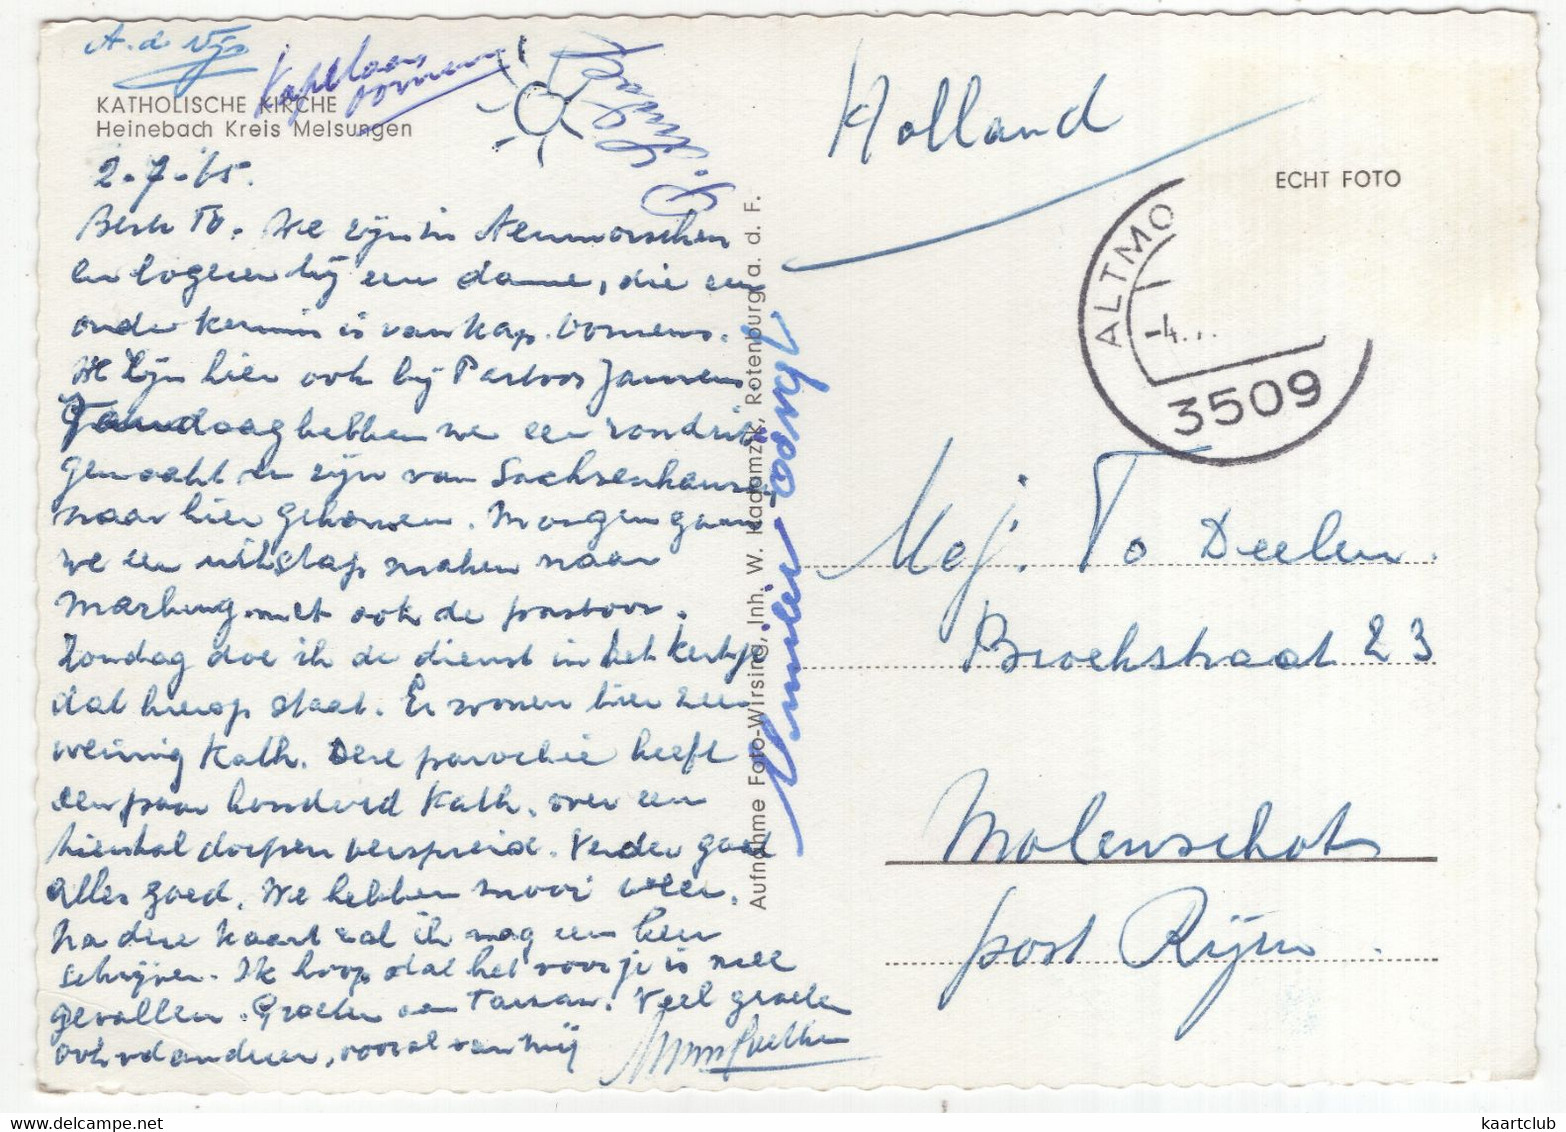 A. d.
Kapelaan
KATHOLISCHE KIRCHE
Heinebach Kreis Melsungen
2-7-65.
Beste To. We zijn in Neumorschen
en logeren bij een dame, die een
onder kennis is van kap. Vornens.
We zijn hier ook bij Pastoor Janssens
Vandaag hebben we een rondrit
gemaakt en zijn van Sachsenhausen
naar hier gekomen. Morgen gaan
we een uitstap maken naar
Marburg met ook de pastoor.
Zondag doe ik de dienst in het kerkje
dat hierop staat. Er wonen hier zeer
weinig Kath. Deze parochie heeft
een paar honderd Kath. over een
tiental dorpen verspreid. Verder gaat
alles goed. We hebben mooi weer.
Na deze kaart zal ik nog een keer
schrijven. Ik hoop dat het voor je is mee
gevallen. Groeten aan Tarzan. Veel groeten
ook v d anderen, vooral van mij
Aufnahme Foto-Wirsing, Inh. W. Kadamzik, Rotenburg a. d. F.
Holland
ECHT FOTO
ALTMO
-4.
3509
Mej. To Deelen.
Broekstraat 23
Molenschot
post Rijen.
kaartclub